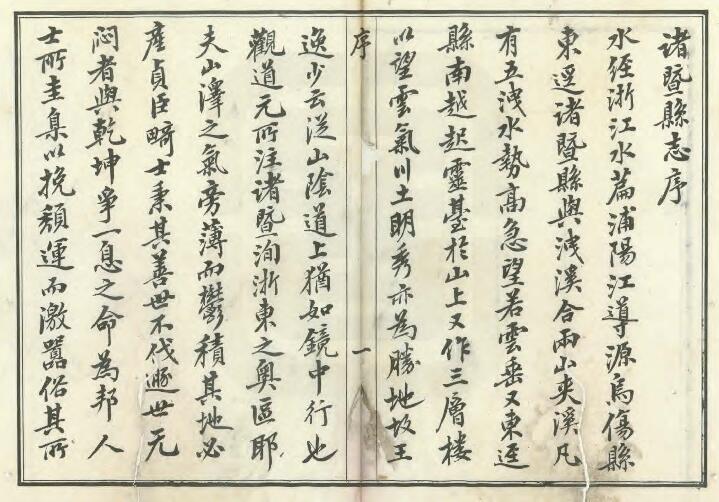 诸暨縣志序
水經浙江水篇浦陽江導源烏傷縣
東逕諸暨縣與洩溪合兩山夾溪凡
有五洩水勢高急望若雲垂又東逕
縣南越起靈臺於山上又作三層樓
以望雲氣川土明秀亦為勝地故王
序
一
逸少云從山陰道上猶如鏡中行也
觀道元所注諸暨洵浙東之奧區耶
夫山澤之氣旁薄而鬱積其地必
產貞臣畸士秉其善世不伐遯世无
悶者與乾坤爭一息之命為邦人
士所圭臬以挽頹運而激囂俗其所